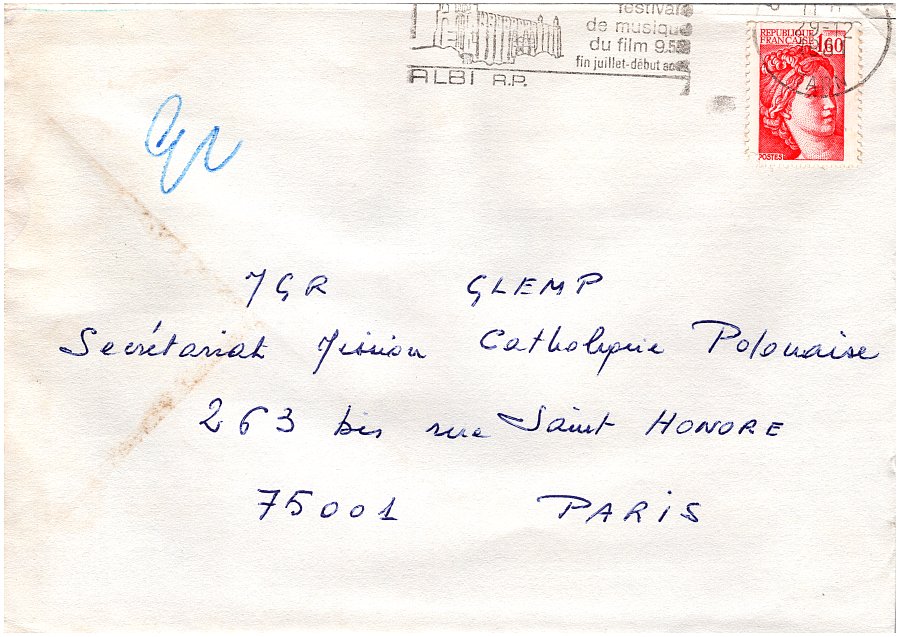 festival
de musique
du film 9.5
fin juillet-début
ALBI R.P.
29-12
REPUBLIQUE
FRANÇAISE
1,60
POSTES
MGR GLEMP
Secrétariat Mission Catholique Polonaise
263 bis rue Saint HONORE
75001 PARIS